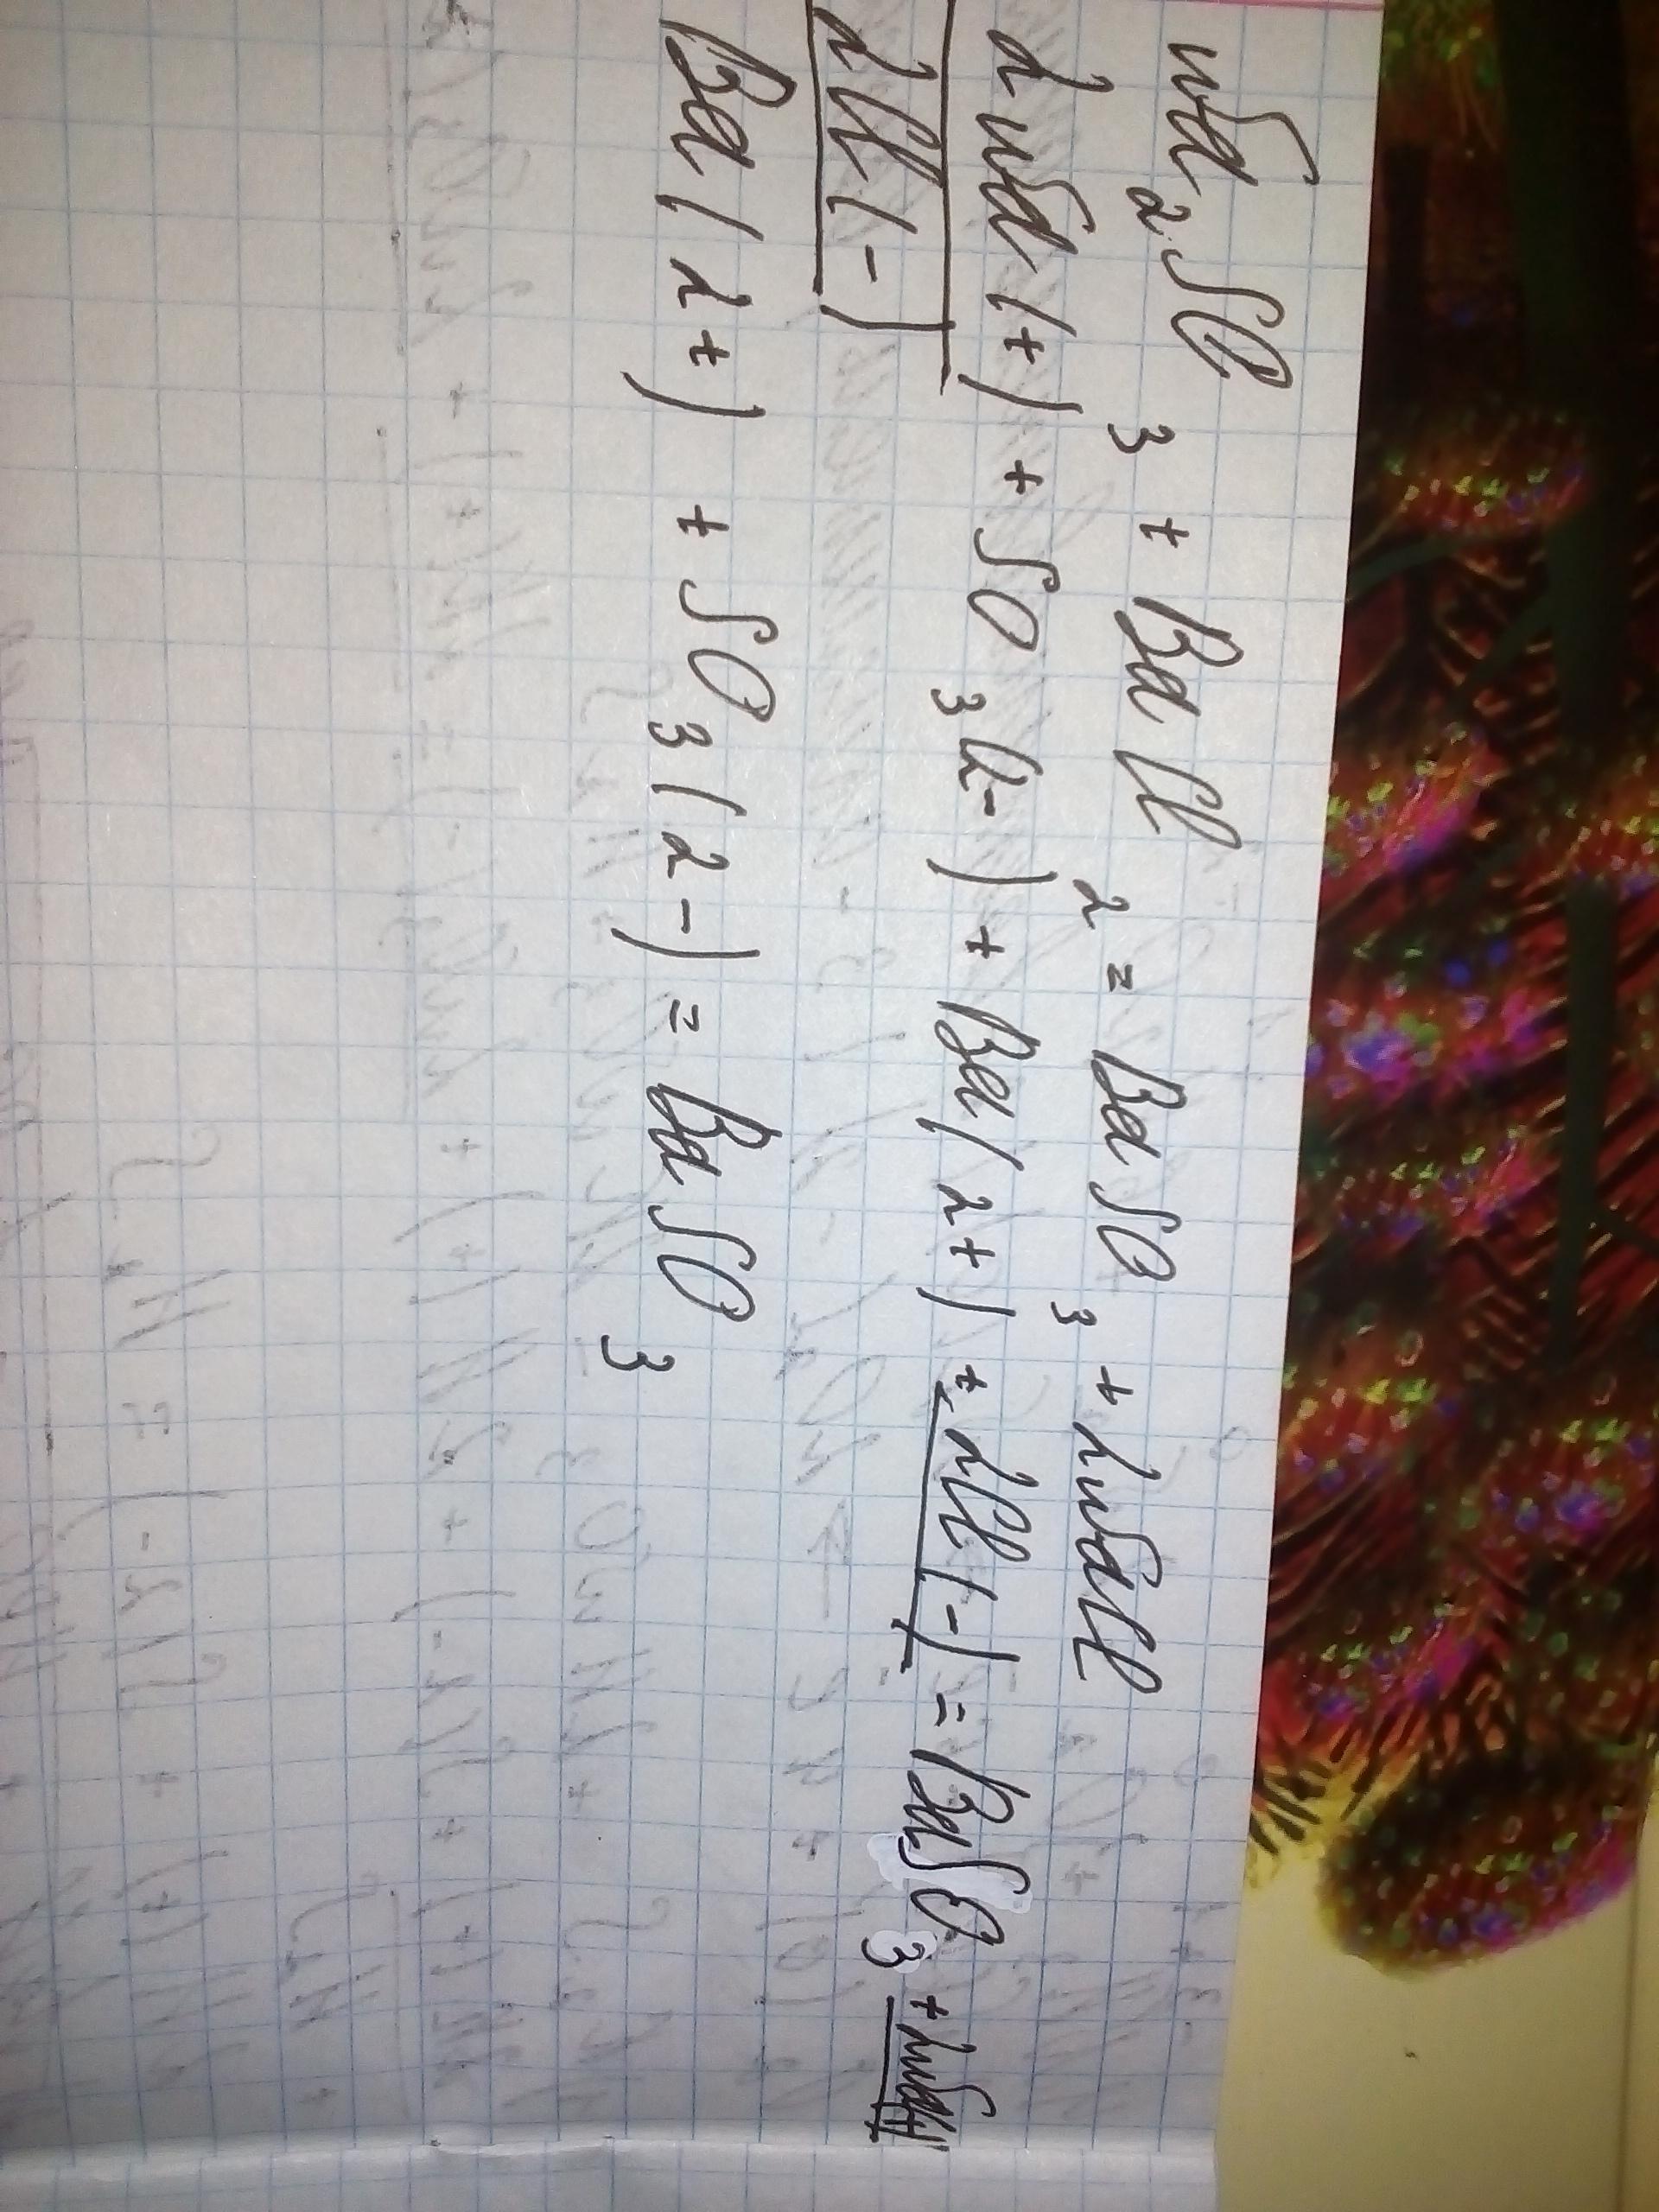 Na2SO3 + BaCl2 = BaSO3 + 2NaCl
2Na(+) + SO3(2-) + Ba(2+) + 2Cl(-) = BaSO3 + 2Na(+)
2Cl(-)
Ba(2+) + SO3(2-) = BaSO3